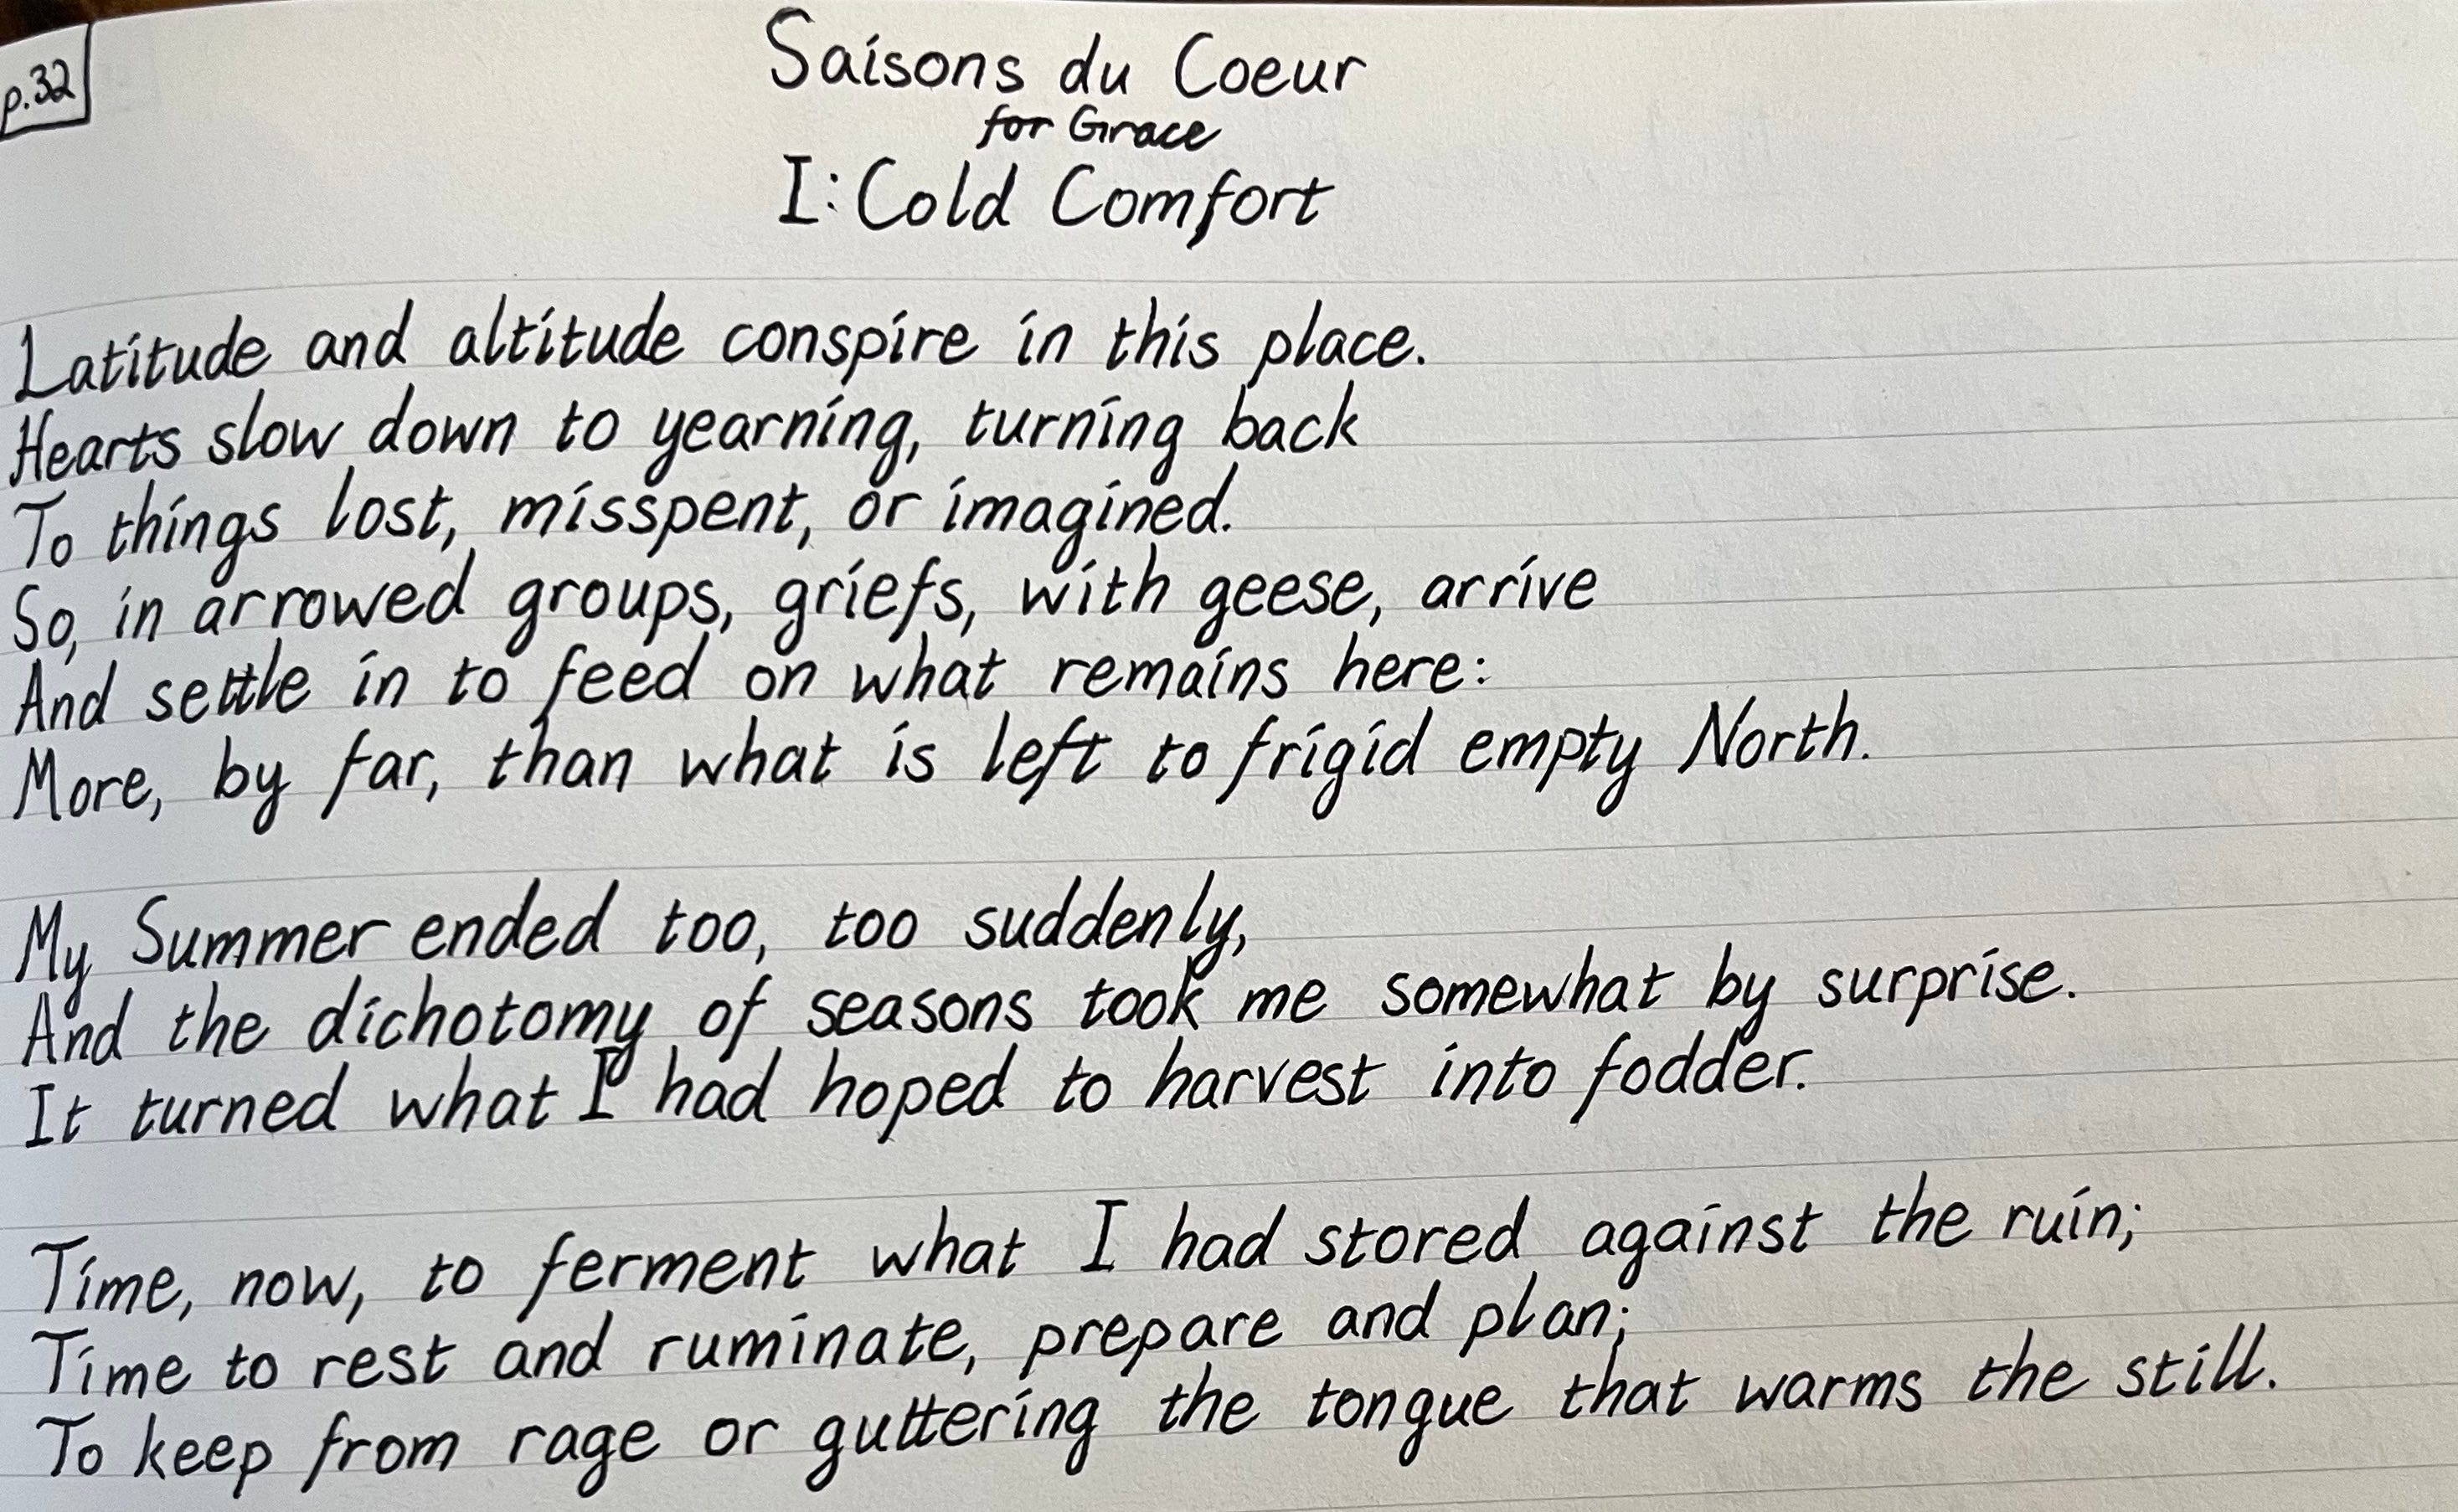 p.32
Saisons du Coeur
for Grace
I: Cold Comfort
Latitude and altitude conspire in this place.
Hearts slow down to yearning, turning back
To things lost, misspent, or imagined.
So, in arrowed groups, griefs, with geese, arrive
And settle in to feed on what remains here:
More, by far, than what is left to frigid empty North.
My Summer ended too, too suddenly,
And the dichotomy of seasons took me somewhat by surprise.
It turned what I had hoped to harvest into fodder.
Time, now, to ferment what I had stored against the ruin;
Time to rest and ruminate, prepare and plan;
To keep from rage or guttering the tongue that warms the still.